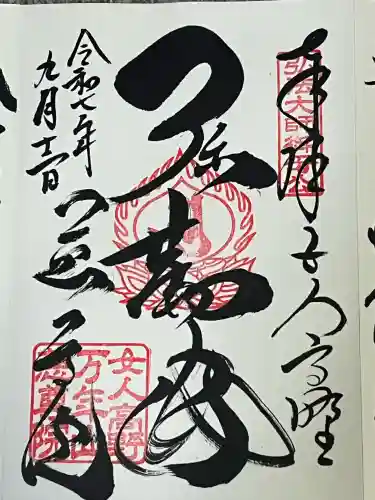 奉拝 女人高野
弘法大師
弥勒
令和七年
九月十一日
慈尊院
女人高野
万年山
慈尊院